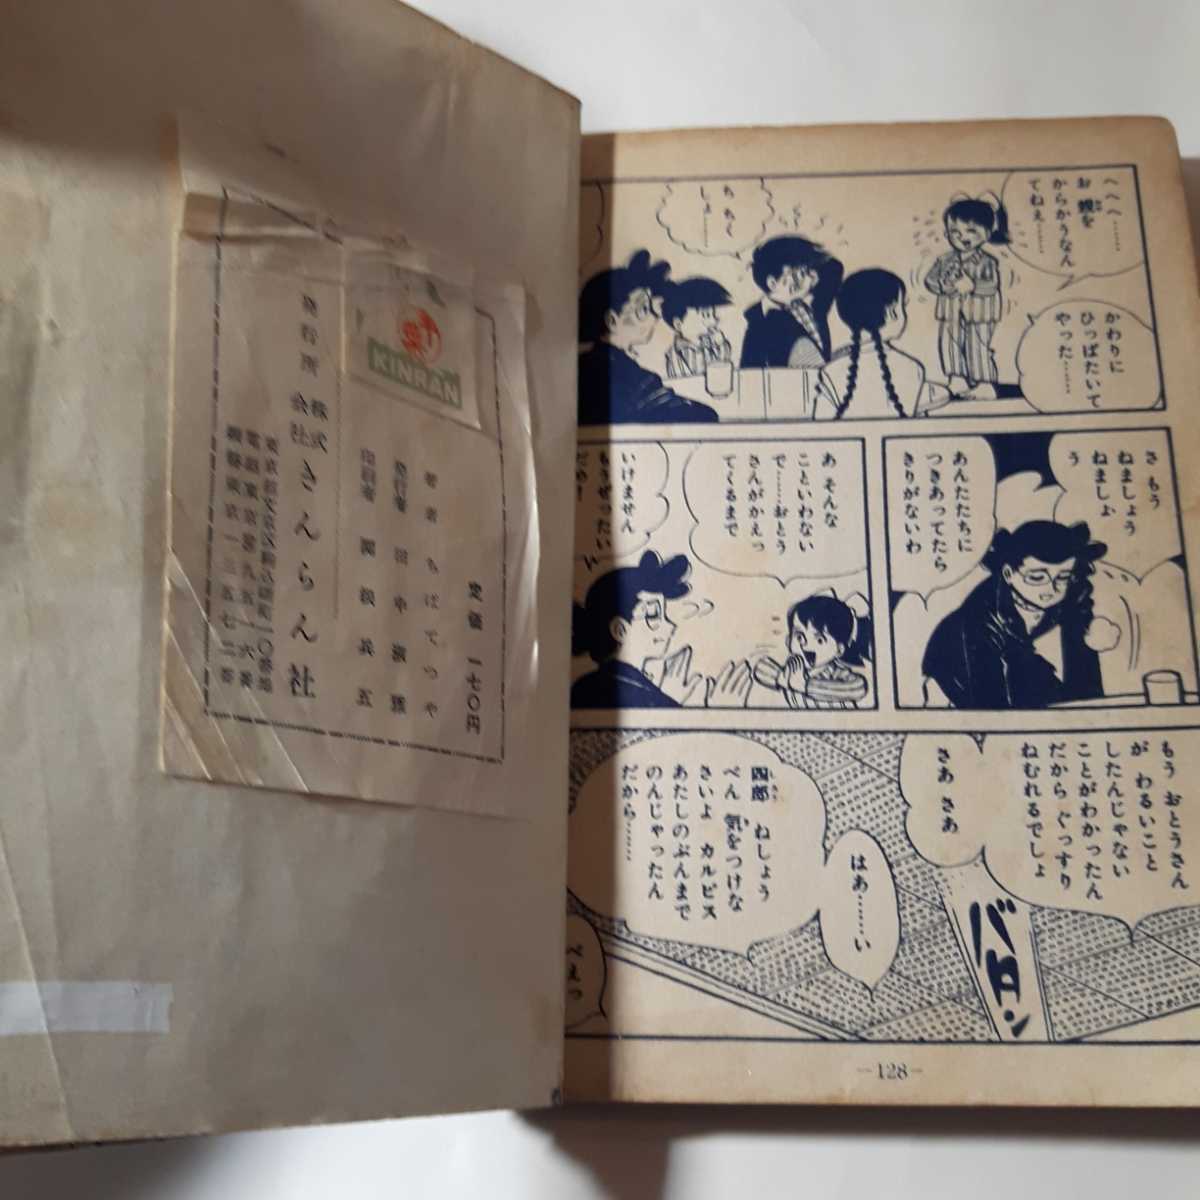 定価 一七〇円
著者 ちばてつや
発行者 田中
印刷者 関根兵五
発行所 株式会社 きんらん社
KINRAN
へへへ……
お親を
からかうなん
てねえ……
かわりに
ひっぱたいて
やった……
ち ちく
しょ……
さ もう
ねましょう
ねましょ
う
あんたたちに
つきあってたら
きりがないわ
あ そんな
こといわない
で……おとう
さんがかえっ
てくるまで
いけません
もうぜったい
だめ!
もう おとうさん
が わるいこと
したんじゃない
ことがわかったん
だから ぐっすり
ねむれるでしょ
さあ さあ
バタン
はあ……い
四郎 ねしょう
べん 気をつけな
さいよ カルピス
あたしのぶんまで
のんじゃったん
だから……
べえっ
—128—